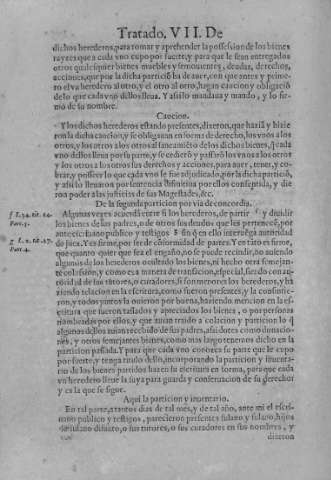 Tratado, VII. De
dichos herederos, para tomar y aprehender la possession de los bienes
rayzes que a cada vno cupo por suerte, y para que le sean entregados
otros qualesquier bienes muebles y semouientes, deudas, derechos,
acciones, que por la dicha particiõ ha de auer, con que antes y prime-
ro el vn heredero al otro, y el otro al otro, hagan caucion y obligació
de lo que cada vno dellos lleua. Y assi lo mandaua y mando, y lo fir-
mò de su nombre.
Caucion.
Y los dichos herederos estando presentes, dixeron, que hazia y hizie
ron la dicha caucion, y se obligaron en forma de derecho, los vnos a los
otros, y los otros a los otros al saneamiẽto de los dichos bienes, q̃ cada
vno dellos lleua por su parte, y se cedierõ y passarõ los vnos a los otros
y los otros a los otros sus derechos y acciones, para auer, tener, y co-
brar, y posseer lo que cada vno le fue adjudicado, por la dicha particiõ,
y assi lo lleuaron por sentencia difinitiua por ellos consentida, y die
ron poder a las justicias de sus Magestades, &c.
De la segunda particion por via de concordia.
f l.54. tit. 14.
Part.5.
Algunas vezes acuerdan entre si los herederos, de partir f y diuidir
los bienes de sus padres, o de otros sus deudos que les pertenecẽ, por
ante escriuano publico y testigos g sin q̃ en ello interuẽga autoridad
g l.2. tit.27.
Part.4.
de juez. Y es firme, por ser de cõformidad de partes. Y es tãto es firme,
que quanto quier que sea el engaño, no se puede rescindir, no auiendo
algunos de los herederos ocultado los bienes, ni hecho otra semejan-
te colusion, y como es a manera de transicion, especial, siendo con au-
toridad de sus tutores, o curadores, si son menores los herederos, y ha
ziendo relacion en la escritura, como fueron presentes, y la consintie-
ron, y todos juntos la ouieron por buena, haziendo mencion en la es-
critura que fueron tassados y apreciados los bienes, o por personas
nombradas por ellos, y que auian traido a colacion y particion lo q̃
algunos dellos auian recebido de sus padres, assi dotes como donacio-
nes, y otros semejantes bienes, como mas largo tenemos dicho en la
particion passada. Y para que cada vno conozca su parte que le cupo
por suerte, y tenga titulo dello, incorporando la particion y inuenta-
rio de los bienes partidos hazen su escritura en forma, para que cada
vn heredero lleue la suya para guarda y conseruacion de su derecho:
y es la que se sigue.
Aqui la particion y inuentario.
En tal parte, a tantos dias de tal mes, y de tal año, ante mi el escri-
uano publico y testigos, parecieron presentes fulano y fulano, hijos
de fulano difunto, o sus tutores, o sus curadores en sus nombres, y
dixeron